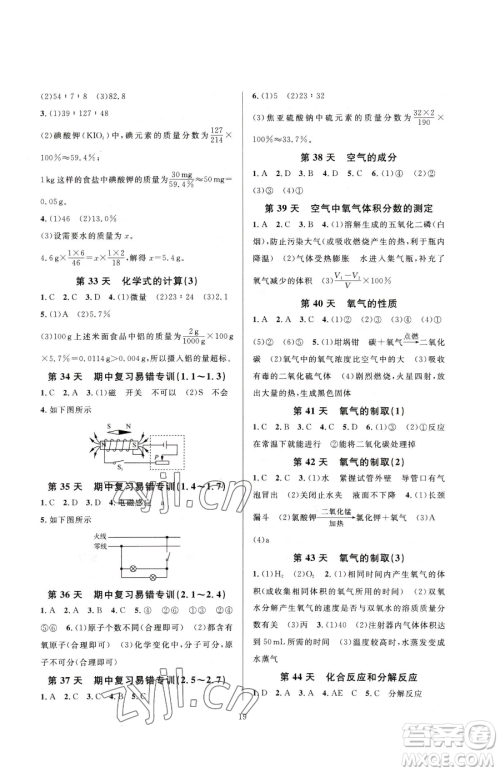 (2)54：7：8　(3)82.8
3.(1)39：127：48
(2)碘酸钾(KIO₃)中，碘元素的质量分数为127/214×
100%≈59.4%
1 kg这样的食盐中碘酸钾的质量为30 mg/59.4%≈
0.05g。
4.(1)46　(2)13.0%
(3)设需要水的质量为x。
4.6g×(1×6)/46=x×(1×2)/18　x=5.4g。
第33天　化学式的计算(3)
1.C　2.D　3.D　4.(1)微量　(2)23：24　(3)C
5.(1)A　(2)5.7%
(3)100g上述米面食品中铝的质量为2g/1000g×100g
×5.7%=0.0114g＞0.001g，所以摄入铝的质量超标。
第34天　期中复习易错专训(1.1~1.3)
1.C　2.A　3.(1)不可以　(2)S　不会
4.如下图所示
S　N
S₁
P
第35天　期中复习易错专训(1.4~1.7)
1.B　2.D　3.B　4.电磁感应
5.如下图所示
火线
零线
第36天　期中复习易错专训(2.1~2.4)
1.B　2.B　3.C　4.B　5.④　⑤　②　①
6.(1)原子个数不同(合理即可)
(2)都由同种原子构成(合理即可)
第37天　期中复习易错专训(2.5~2.7)
1.A　2.C　3.B　4.B　5.C
6.(1)5　(2)23：32
(3)焦亚硫酸钠中硫元素的质量分数为(32×2)/190×
100%≈33.7%。
第38天　空气的成分
1.A　2.D　3.C　4.B　5.(1)④　(2)①　(3)②
第39天　空气中氧气体积分数的测定
1.D　2.B　3.B　4.(1)燃烧生成的五氧化二磷(白
烟)，防止污染空气　吸收燃烧产生的热量，使温度
降温　(2)红磷剧烈燃烧　水进入集气瓶，与消耗的
氧气减少的体积　(3)(V₁-V₂)/V×100%
第40天　氧气的性质
1.A　2.C　3.B　4.B　5.(1)碳+氧气 点燃→ 二氧化
碳　(2)氧气的浓度比空气中的大　(3)吸收生成的
有毒的二氧化硫气体　(4)剧烈燃烧，火星四射，放热
量的热，生成黑色固体
第41天　氧气的制取(1)
1.A　2.D　3.B　4.B　5.(1)④　②③　①⑤　(2)反应
在常温下就能进行　(3)能将二氧化锰除掉
第42天　氧气的制取(2)
1.A　2.A　3.A　4.(1)水槽　紧握试管外壁　导管口有气
泡冒出　(2)关闭止水夹　液面不下降　5.(1)长颈
漏斗　(2)氯酸钾 二氧化锰/加热→ 氯化钾+氧气　(3)A
(4)a
第43天　氧气的制取(3)
1.(1)H₂　O₂　(2)在相同的时间内产生氧气的体
积(或收集相同体积的氧气所用的时间)　(3)双氧
水分解产生氧气的质量与双氧水的浓度有关
2.(1)二氧化锰(合理即可)　(2)相同时间内收集到
50mL所需的时间　(3)注射器内气体体积
3.(1)④　②⑤　③①　(3)温度过高，水蒸发变成
水蒸气
第44天　化合反应和分解反应
1.D　2.A　3.C　4.A　5.AE　C　6.①④　②③
19